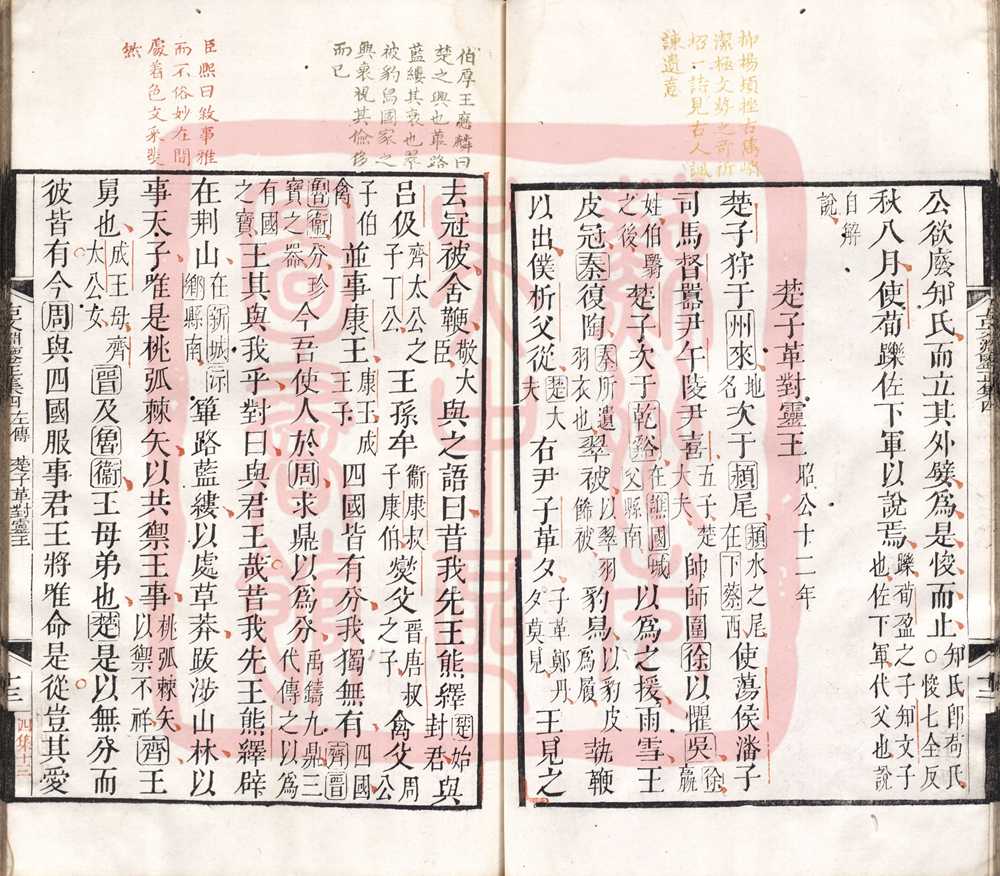 抑揚頓挫古雋峭
潔極文勢之奇所
招一詩見古人諷
諫遺意
公欲廢知氏而立其外嬖爲是悛而止知氏卽荀氏○悛七全反
秋八月使荀躒佐下軍以說焉躒荀盈之子知文子也佐下軍代父也說
自解說
楚子革對靈王 昭公十二年
楚子狩于州來地名次于潁尾潁水之尾在下蔡西使蕩侯潘子
司馬督囂尹午陵尹喜五子楚大夫帥師圍徐以懼吳徐嬴
姓伯翳之後楚子次于乾谿在譙國城父縣南以爲之援雨雪王
皮冠秦復陶秦所遺羽衣也翠被以翠羽飾被豹舄以豹皮爲履執鞭
以出僕析父從楚大夫右尹子革夕子革鄭丹夕莫見王見之
伯厚王應麟曰
楚之興也蓽路
藍縷其衰也翠
被豹舄國家之
興衰視其儉侈
而已
臣熙曰敘事雅
而不俗妙在閒
處着色文采斐
然
去冠被舍鞭敬大臣與之語曰昔我先王熊繹楚始封君與
呂伋齊太公之子丁公王孫牟衞康叔子康伯燮父晉唐叔之子禽父周公
子伯禽並事康王康王成王子四國皆有分我獨無有四國齊晉
魯衞分珍寶之器今吾使人於周求鼎以爲分禹鑄九鼎三代傳之以爲
有國之寶王其與我乎對曰與君王哉昔我先王熊繹辟
在荆山在新城沶鄉縣南篳路藍縷以處草莽跋涉山林以
事天子唯是桃弧棘矢以共禦王事桃弧棘矢以禦不祥齊王
舅也成王母齊太公女晉及魯衞王母弟也楚是以無分而
彼皆有今周與四國服事君王將唯命是從豈其愛
左傳 楚子革對靈王
十三
四集十三